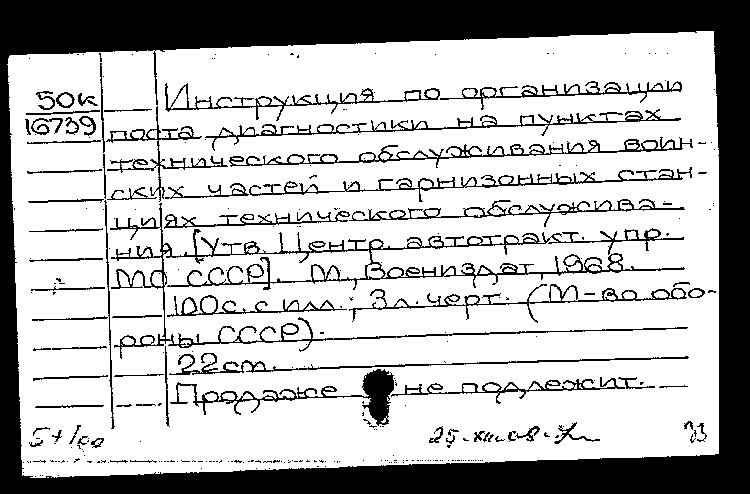 50к
16739
Инструкция по организации
поста диагностики на пунктах
технического обслуживания воин-
ских частей и гарнизонных стан-
циях технического обслужива-
ния. [Утв. Центр. автотракт. упр.
МО СССР]. М., Воениздат, 1968.
100с. с илл.; 3л. черт. (М-во обо-
роны СССР).
22см.
Продаже не подлежит.